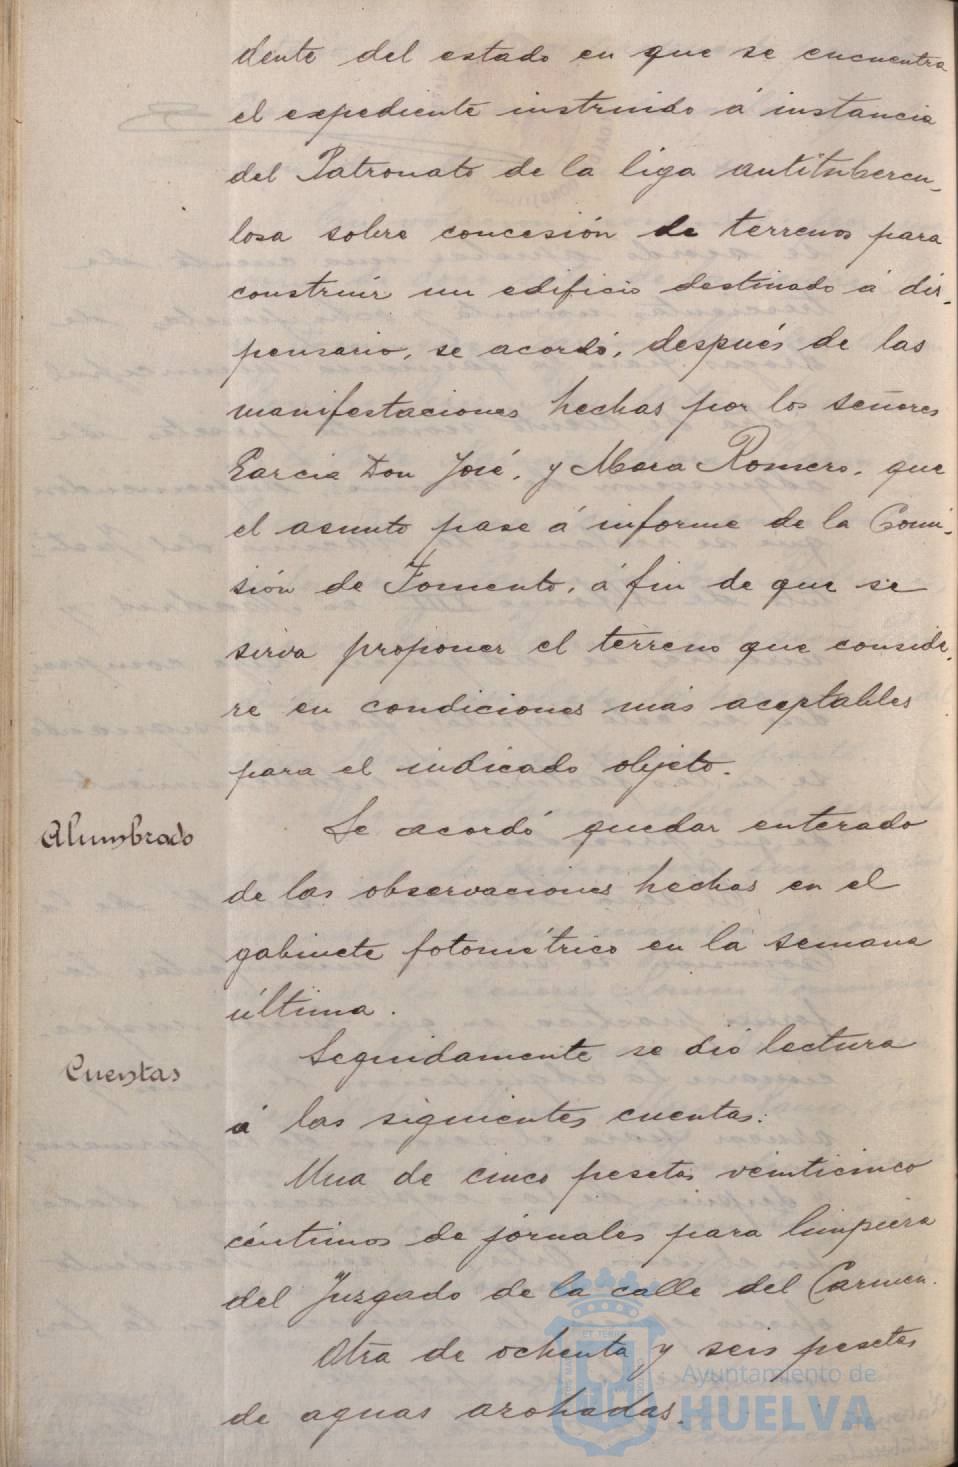 dente del estado en que se encuentra
el expediente instruido á instancia
del Patronato de la liga antitubercu-
losa sobre concesión de terrenos para
construir un edificio destinado á dis-
pensario, se acordó, después de las
manifestaciones hechas por los señores
Garcia Don José, y Mora Romero, que
el asunto pase á informe de la Comi-
sión de Fomento, á fin de que se
sirva proponer el terreno que conside-
re en condiciones más aceptables
para el indicado objeto.
Alumbrado
Se acordó quedar enterado
de las observaciones hechas en el
gabinete fotométrico en la semana
última.
Cuentas
Seguidamente se dió lectura
á las siguientes cuentas:
Una de cinco pesetas veinticinco
céntimos de jornales para limpieza
del Juzgado de la calle del Carmen.
Otra de ochenta y seis pesetas
de aguas arobadas.
Ayuntamiento de
HUELVA